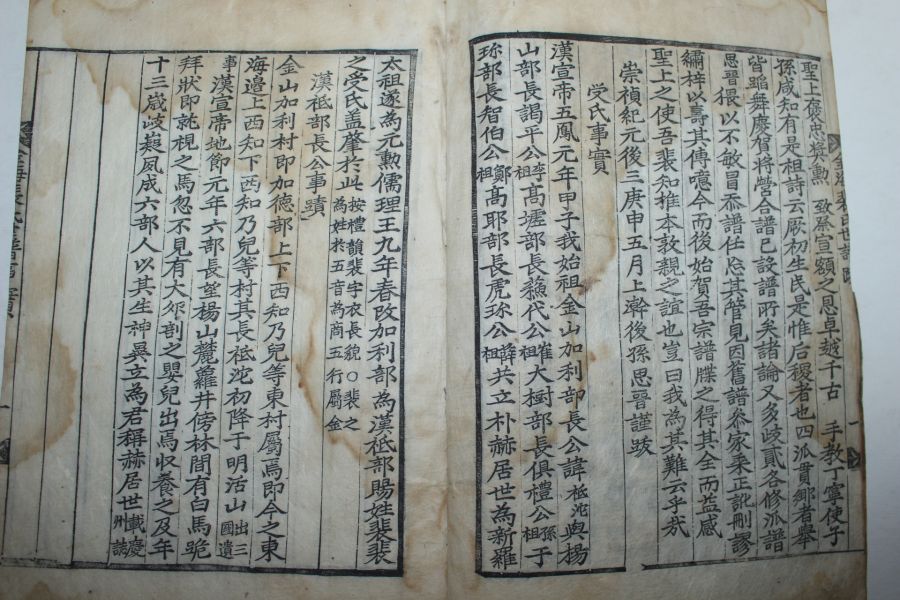 聖上褒忠奬勲 致祭宣額之恩卓越千古 手教丁寧使子
孫咸知有是祖詩云厥初生民是惟后稷者也四派貫鄕者舉
皆蹈舞慶賀將營合譜已設譜所矣諸論又多歧貳各修派譜
思晉猥以不敏冒忝譜任忘其管見因舊譜叅家乗正訛刪謬
繡梓以壽其傳噫今而後始賀吾宗譜牒之得其全而益感
聖上之使吾裴知推本敦親之誼也豈曰我為其難云乎㦲
崇禎紀元後三庚申五月上澣後孫思晉謹跋
受氏事實
漢宣帝五鳳元年甲子我始祖金山加利部長公諱祗沱與楊
山部長謁平公李祖髙墟部長蘇伐公崔祖大樹部長俱禮公孫祖于
珍部長智伯公鄭祖髙耶部長虎珍公薛祖共立朴赫居世為新羅
太祖遂為元勲儒理王九年春改加利部為漢祗部賜姓裴裴
之受氏盖肇於此按禮韻裴字衣長貌○裴之為姓於五音為商五行屬金
漢祗部長公事蹟
金山加利村即加德部上下西知乃兒等東村屬焉即今之東
海邉上西知下西知乃兒等村其長祗沱初降于明活山出三國遺
事漢宣帝地節元年六部長望楊山麓蘿井傍林間有白馬跪
拜狀即就視之馬忽不見有大卵剖之嬰兒出焉收養之及年
十三歳岐嶷夙成六部人以其生神異立為君稱赫居世載慶州誌